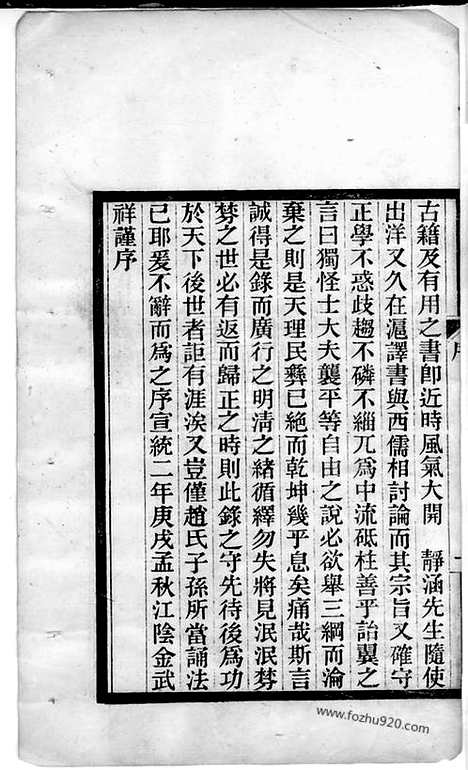 古籍及有用之書卽近時風氣大開　靜涵先生隨使
出洋又久在滬譯書與西儒相討論而其宗旨又確守
正學不惑歧趨不磷不緇兀爲中流砥柱善乎詒翼之
言曰獨怪士大夫襲平等自由之說必欲舉三綱而淪
棄之則是天理民彝已絕而乾坤幾乎息矣痛哉斯言
誠得是錄而廣行之明清之緒循繹勿失將見泯泯棼
棼之世必有返而歸正之時則此錄之守先待後爲功
於天下後世者詎有涯涘又豈僅趙氏子孫所當誦法
已耶爰不辭而爲之序宣統二年庚戌孟秋江陰金武
祥謹序
www.fozhu920.com